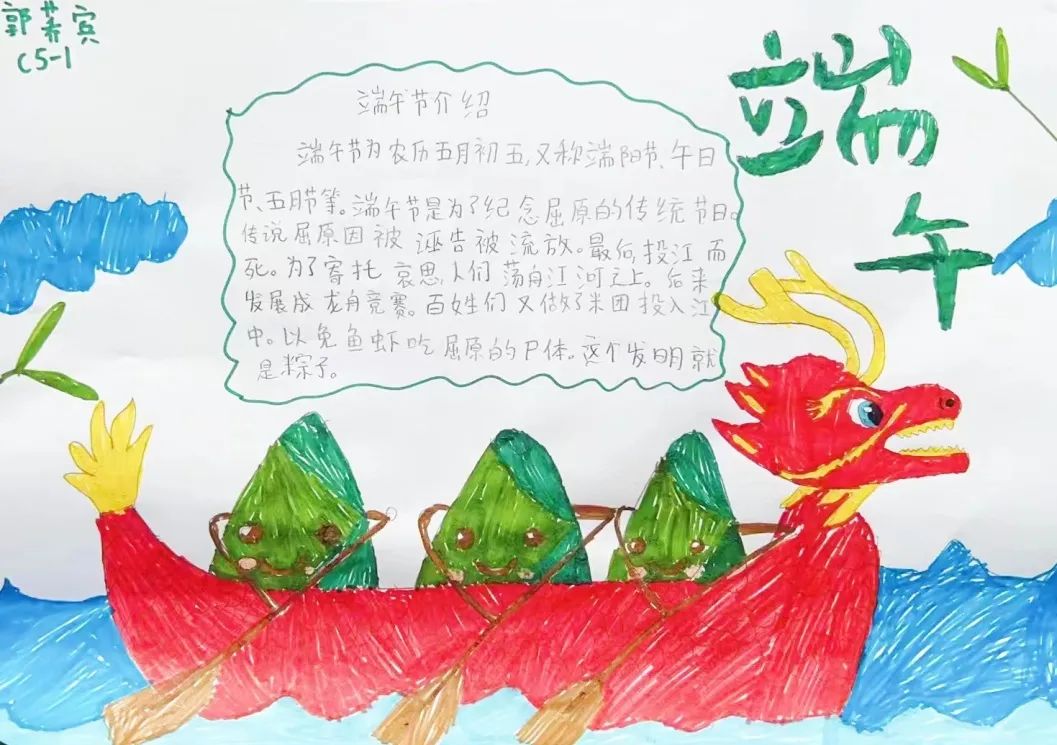 郭 宾
C5-1
端
午
端午节介绍
端午节为农历五月初五,又称端阳节、午日
节、五月节等。端午节是为了纪念屈原的传统节日。
传说屈原因被诬告被流放。最后,投江而
死。为了寄托哀思,人们荡舟江河之上。后来
发展成龙舟竞赛。百姓们又做了米团投入江
中。以免鱼虾吃屈原的尸体。这个发明就
是粽子。